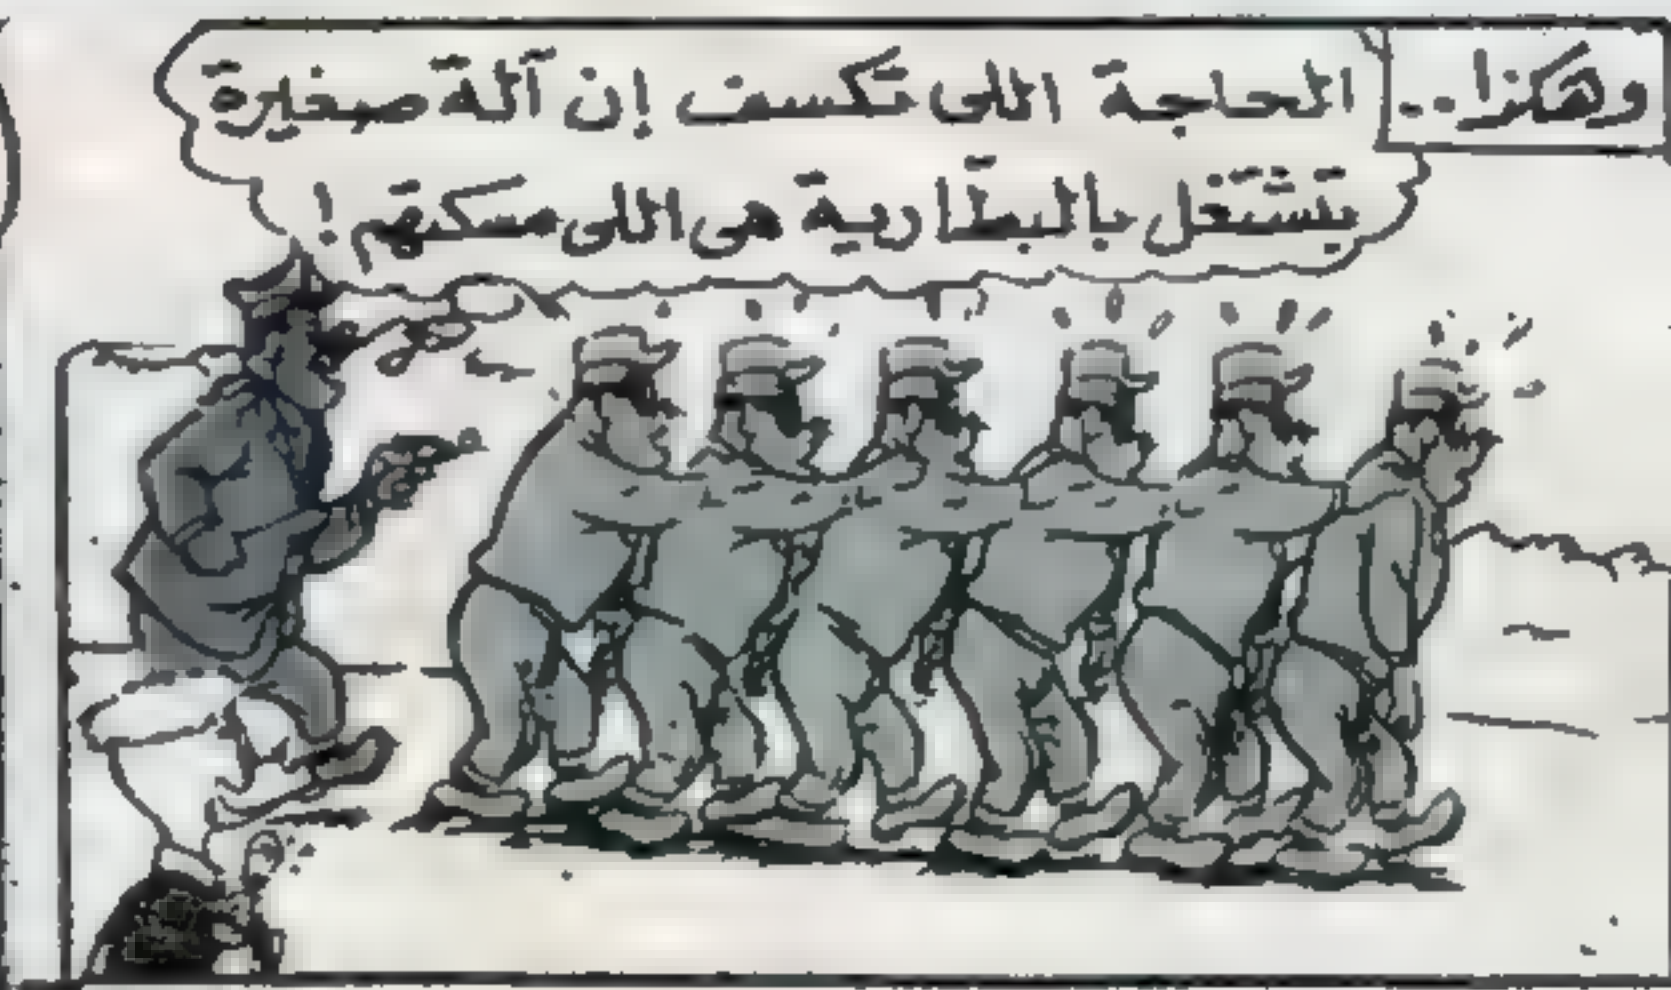 وهكذا..
الحاجة اللى تكسف إن آلة صغيرة
بتشتغل بالبطّارية هى اللى مسكتهم!